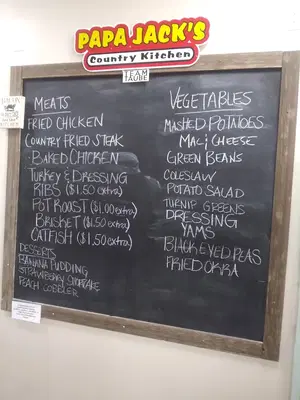 PAPA JACK'S
Country Kitchen
TEAM
TAUBE
MEATS
FRIED CHICKEN
COUNTRY FRIED STEAK
BAKED CHICKEN
TURKEY & DRESSING
RIBS ($1.50 extra)
POT ROAST ($1.00 extra)
BRISKET ($1.50 extra)
CATFISH ($1.50 extra)
DESSERTS
BANANA PUDDING
STRAWBERRY SHORTCAKE
PEACH COBBLER
VEGETABLES
MASHED POTATOES
MAC & CHEESE
GREEN BEANS
COLESLAW
POTATO SALAD
TURNIP GREENS
DRESSING
YAMS
BLACK EYED PEAS
FRIED OKRA